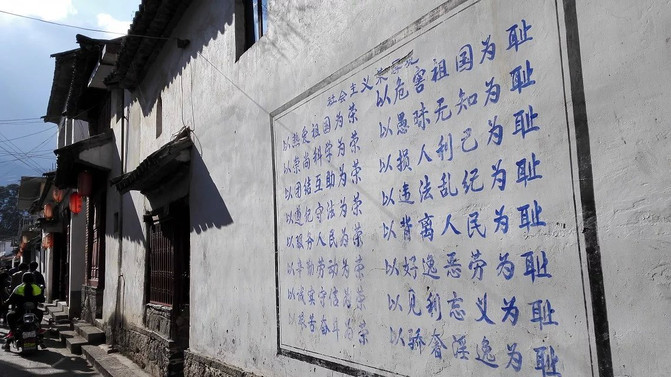 社会主义荣辱观
以热爱祖国为荣 以危害祖国为耻
以崇尚科学为荣 以愚昧无知为耻
以团结互助为荣 以损人利己为耻
以遵纪守法为荣 以违法乱纪为耻
以服务人民为荣 以背离人民为耻
以辛勤劳动为荣 以好逸恶劳为耻
以诚实守信为荣 以见利忘义为耻
以艰苦奋斗为荣 以骄奢淫逸为耻